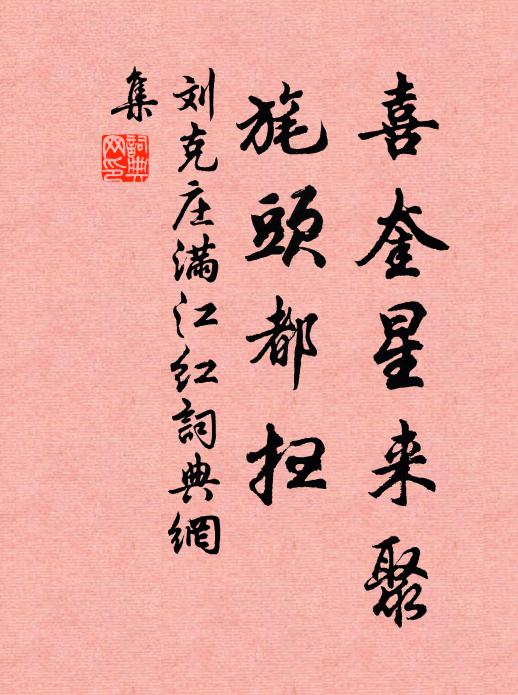 喜奎星来聚
旄頭都扫
刘克庄满江红詞典網
集
詞典
网印